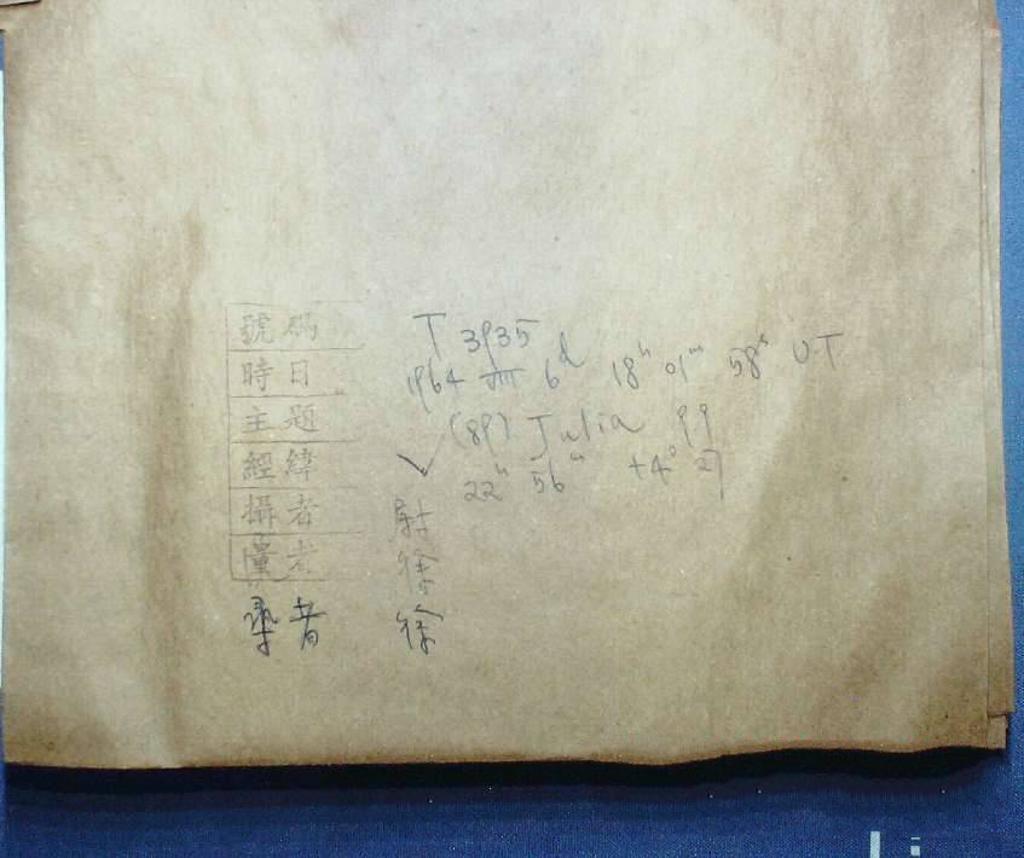 號碼 T 3935
時日 1964 VIII 6d 18h 01m 58s U.T
主題 (89) Julia 99
經緯 ✓ 22h 56m +4° 27
攝者 尉
量者 徐
錄者 徐